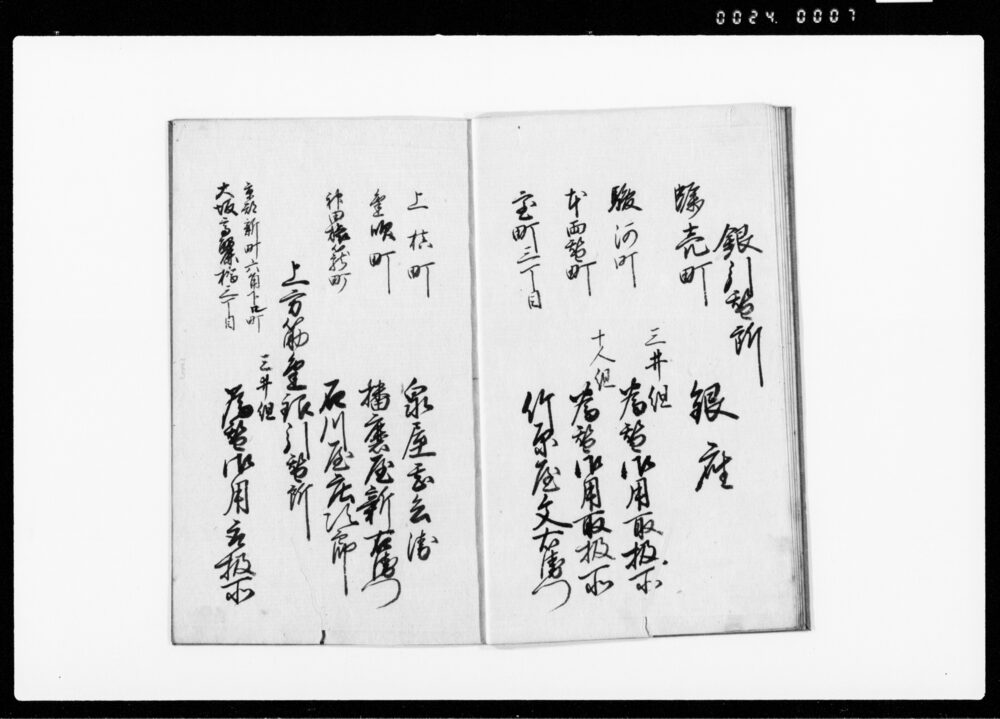 0024 0007
銀引替所
蠣売町
銀座
駿河町
三井組
為替御用取扱所
本両替町
十人組
為替御用取扱所
室町三丁目
竹原屋文右衛門
上槙町
泉屋
兵衛
金吹町
播磨屋新右衛門
神田旅籠町
石川屋庄次郎
上方筋金銀引替所
京都新町六角下ル町
大坂高麗橋三丁目
三井組
為替御用取扱所